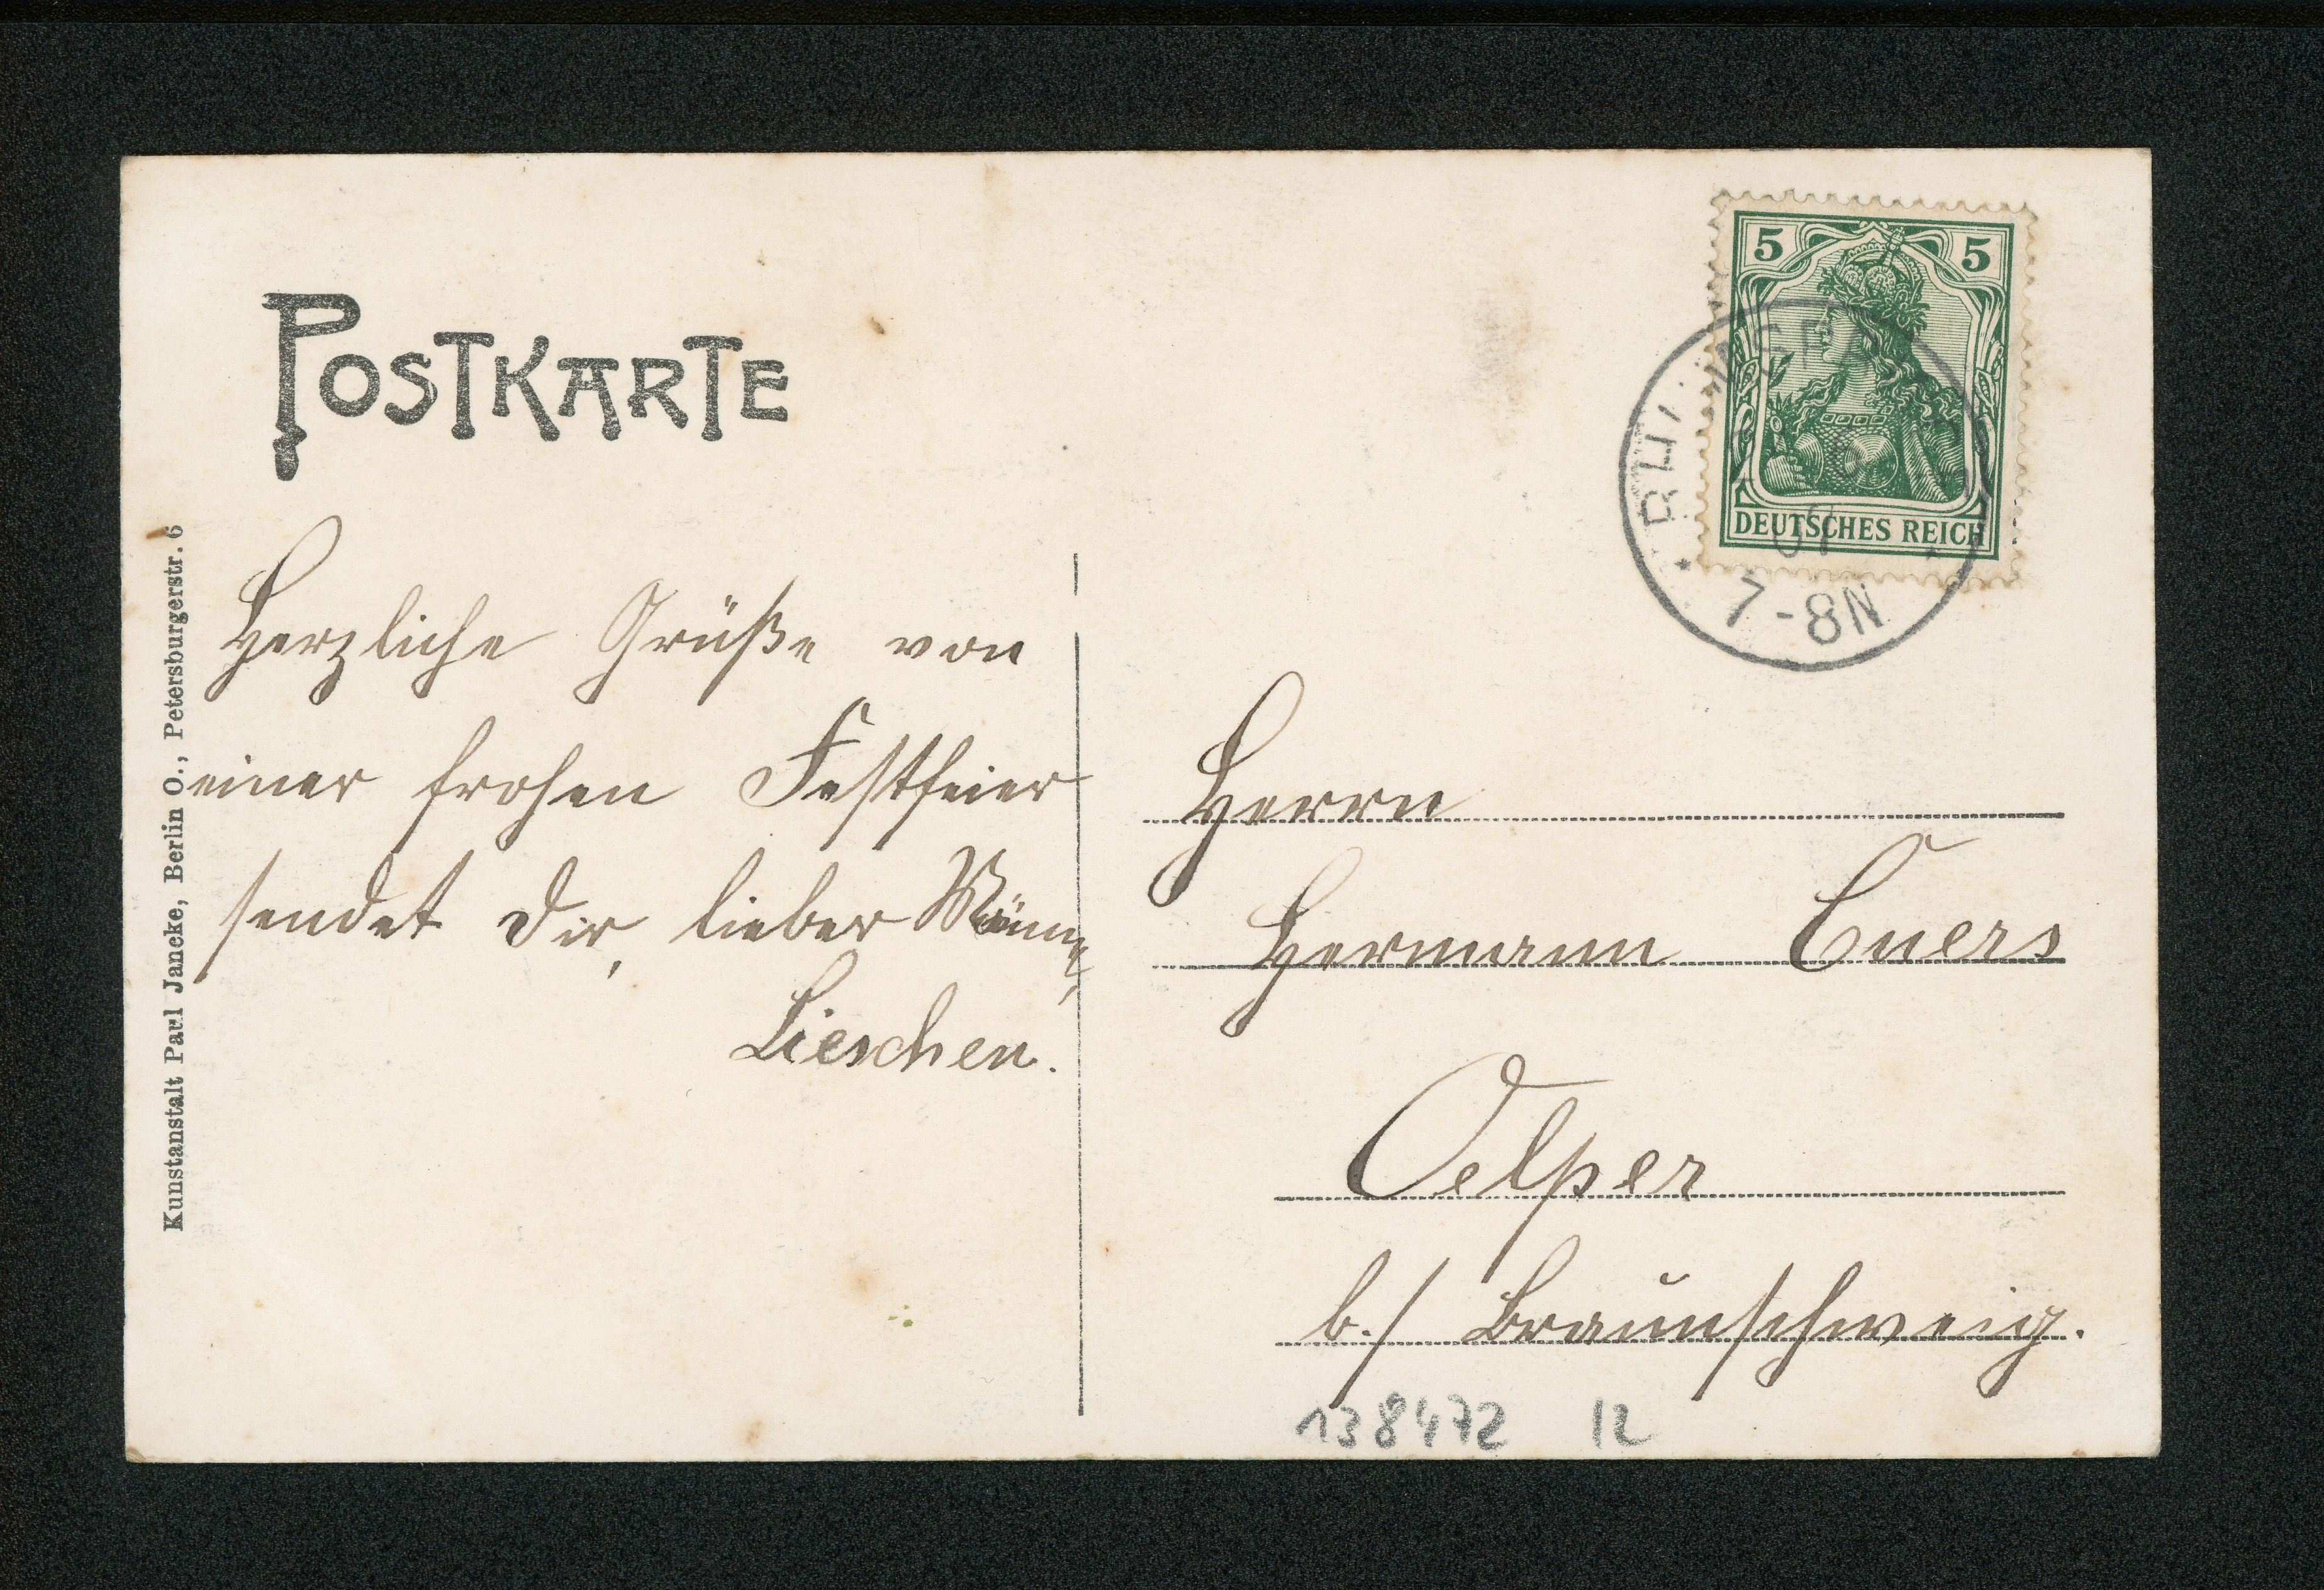 POSTKARTE
Kunstanstalt Paul Jancke, Berlin O., Petersburgerstr. 6
Herzliche Grüße von
einer frohen Festfeier
sendet Dir, lieber
Lieschen.
5 5
DEUTSCHES REICH
07
7-8N
Herrn
Hermann Cuers
Oelper
b./ Braunschweig.
138472 12